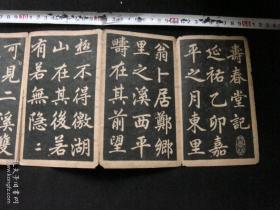 壽春堂記
延祐乙卯嘉
平之月東里
翁卜居鄭鄉
里之溪西平
疇在其前望
極不得微湖
山在其後若
有若無隱〻
可見二溪雙